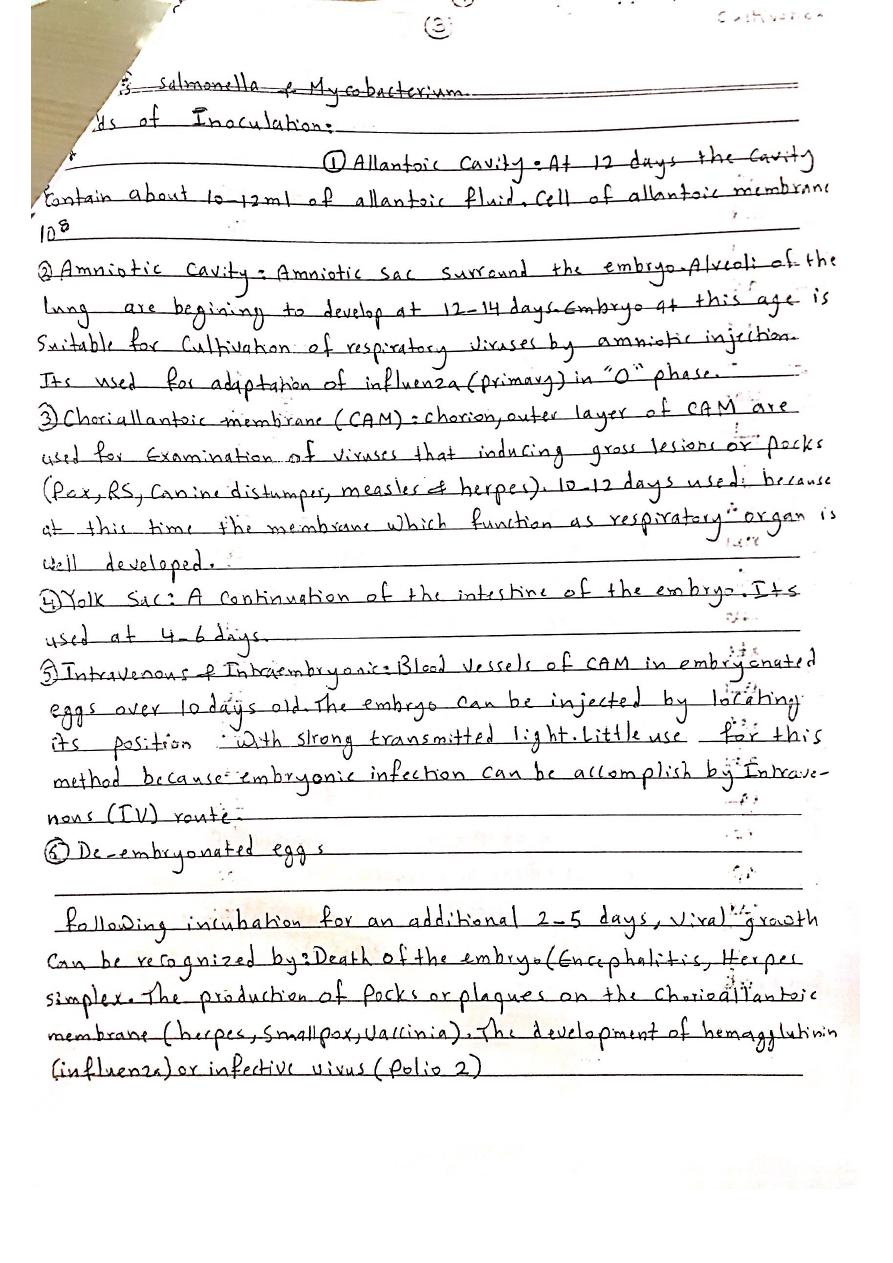 (3)
Salmonella & Mycobacterium.
ds of Inoculation:
① Allantoic Cavity: At 12 days the Cavity
Contain about 10-12ml of allantoic fluid. Cell of allantoic membrane
10⁸
② Amniotic Cavity: Amniotic Sac Surround the embryo. Alveoli of the
lung are begining to develop at 12-14 days. Embryo at this age is
Suitable for Cultivation of respiratory viruses by amniotic injection.
Its used for adaptation of influenza (primary) in "O" phase.
③ Choriallantoic membrane (CAM): chorion, outer layer of CAM are
used for Examination of viruses that inducing gross lesions or pocks
(Pox, RS, Canine distumper, measles & herpes). 10-12 days used: because
at this time the membrane which function as respiratory organ is
well developed.
④ Yolk Sac: A Continuation of the intestine of the embryo. Its
used at 4-6 days.
⑤ Intravenous & Intraembryonic: Blood Vessels of CAM in embryonated
eggs over 10 days old. The embryo can be injected by locating
its position with strong transmitted light. Little use for this
method because embryonic infection can be accomplish by Intrave-
nous (IV) route.
⑥ De-embryonated eggs
following incubation for an additional 2-5 days, viral growth
Can be recognized by: Death of the embryo (Encephalitis, Herpes
simplex. The production of Pocks or plaques on the Chorioallantoic
membrane (herpes, Smallpox, Vaccinia). The development of hemagglutinin
(influenza) or infective virus (Polio 2)